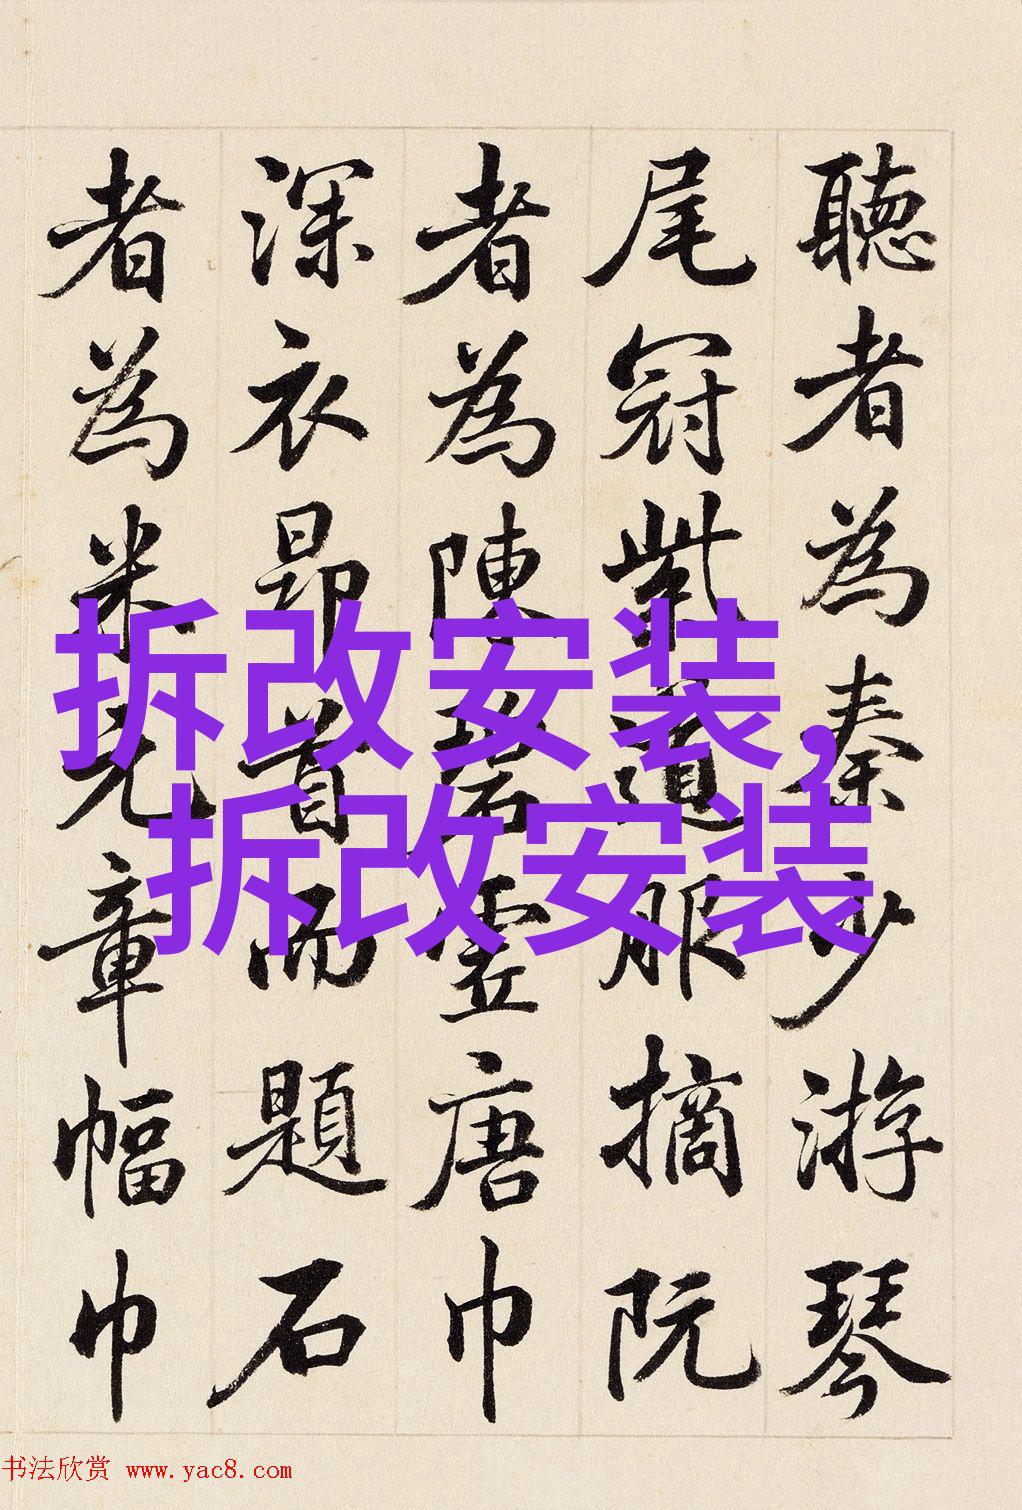 聽者為秦少游琴
尾冠紫道服摘阮
者為陳碧虛唐巾
深衣昂首而題石
者為米元章幅巾
拆改安装,
拆改安装
书法欣赏 www.yac8.com